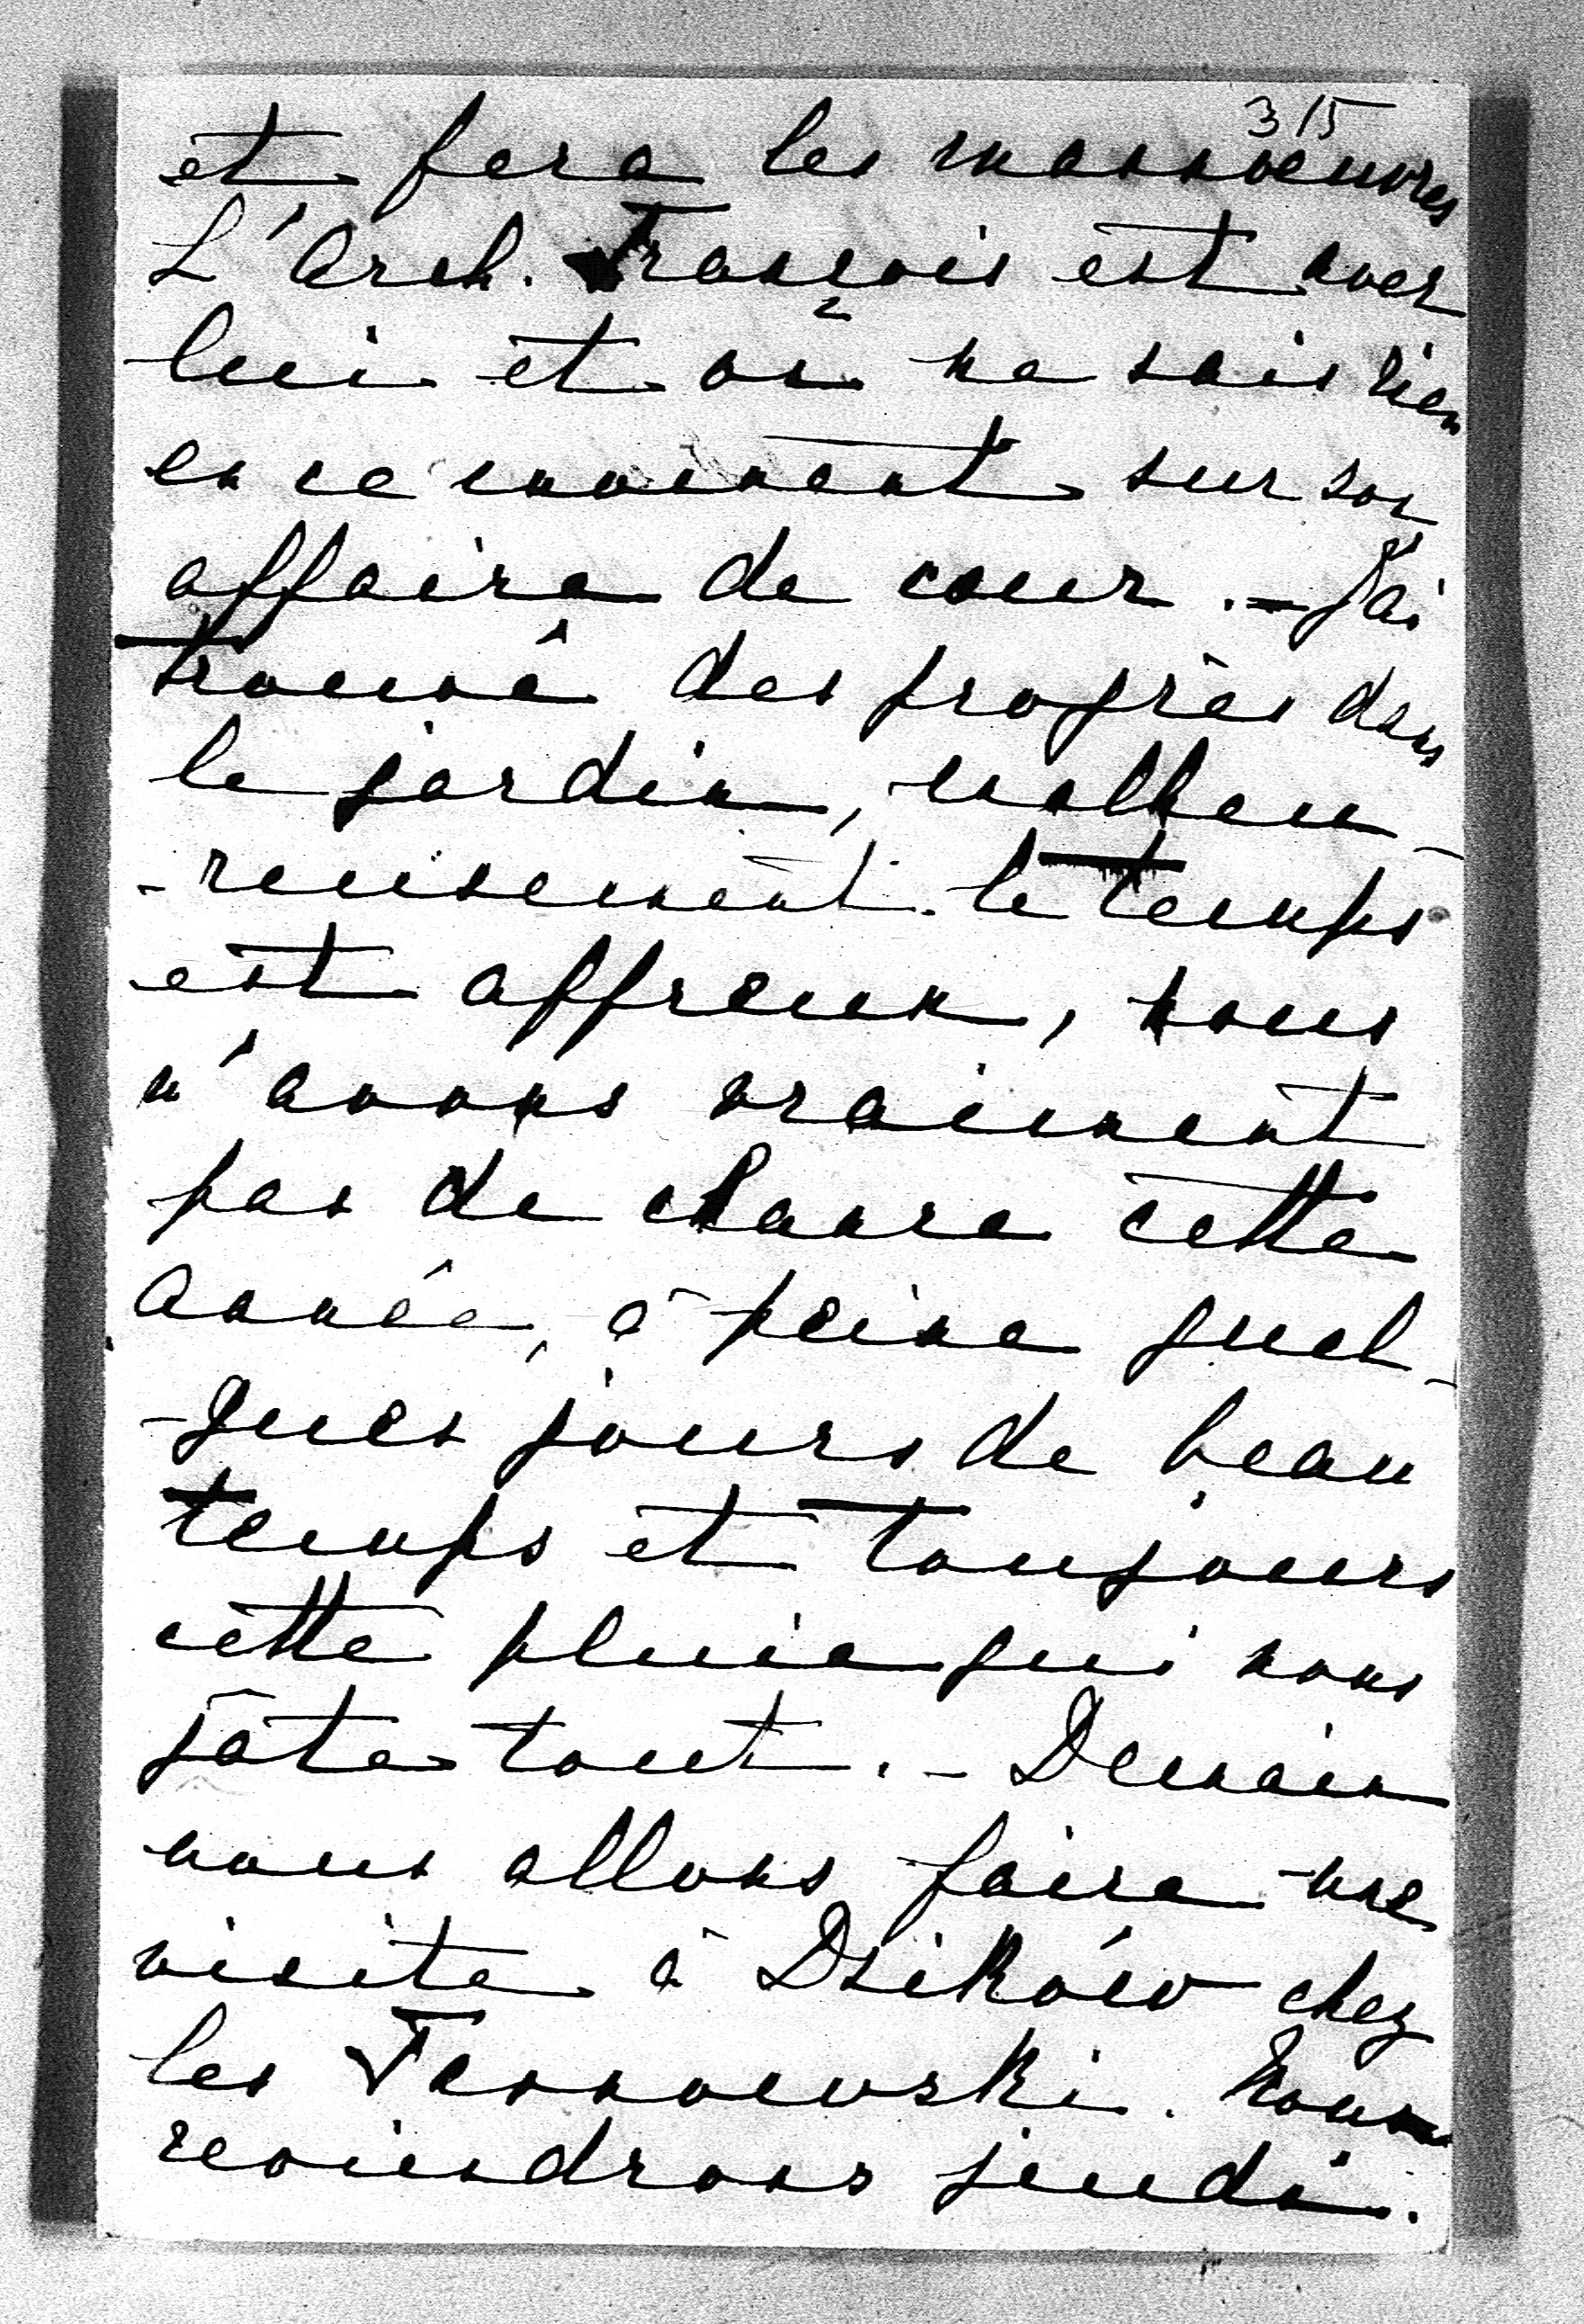 315
et fera les manœuvres
L'Arch. François est avec
lui et on ne sais rien
en ce moment sur son
affaire de cœur. - J'ai
trouvé des progrès dans
le jardin, malheu-
-reusement le temps
est affreux, nous
n'avons vraiment
pas de chance cette
année, à peine quel-
-ques jours de beau
temps et toujours
cette pluie qui nous
gâte tout. - Demain
nous allons faire une
visite à Dzików chez
les Tarnowski. Nous
reviendrons jeudi.